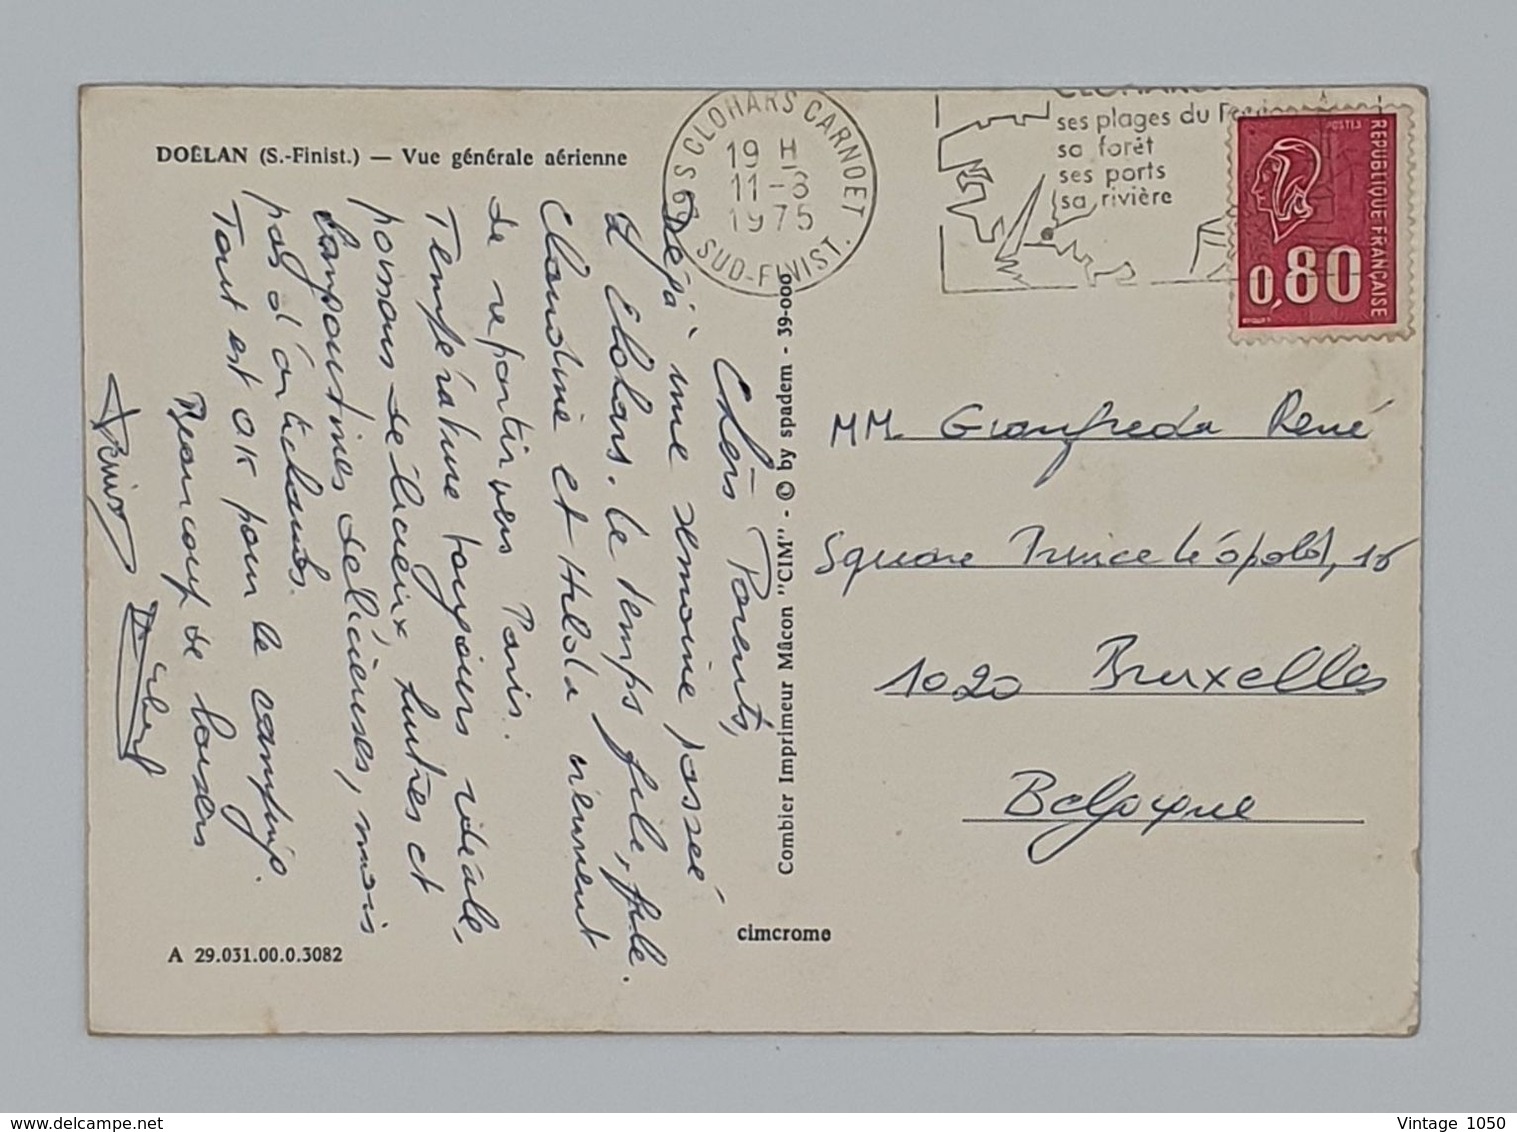 DOËLAN (S.-Finist.) — Vue générale aérienne
29 CLOHARS CARNOET
19 H
11-8
1975
SUD-FINIST.
ses plages du
sa forêt
ses ports
sa rivière
REPUBLIQUE FRANÇAISE
POSTES
0,80
Chers Parents,
Déjà une semaine passée
à Clohars. Le temps file, file.
Claudine et Hilda viennent
de repartir vers Paris.
Température toujours idéale,
poissons délicieux, huitres et
langoustines délicieuses, mais
pas d'artichauts.
Tout est OK pour le camping.
Beaucoup de baisers
MM Gianfreda René
Square Prince Léopold, 16
1020 Bruxelles
Belgique
Combier Imprimeur Mâcon "CIM" - © by spadem - 39-000
cimcrome
A 29.031.00.0.3082
Vintage 1050
delcampe.net